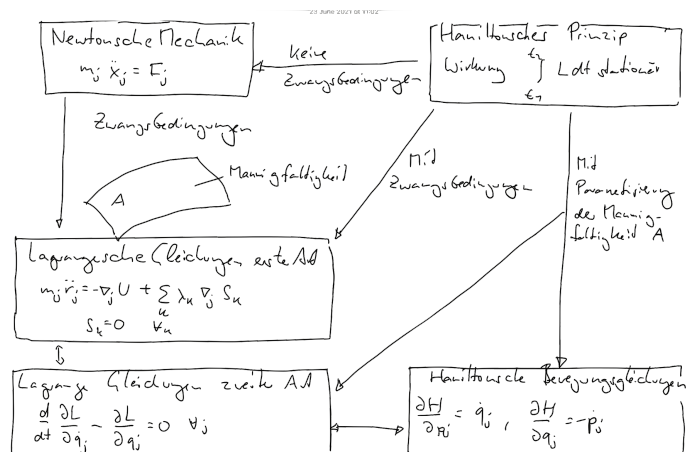 23 June 2021 at 11:02
Newtonsche Mechanik
m_j ẍ_j = F_j
Keine
Zwangsbedingungen
Hamiltonsches Prinzip
Wirkung ∫_{t_1}^{t_2} L dt stationär
Zwangsbedingungen
Mannigfaltigkeit
A
Mit
Zwangsbedingungen
Mit
Parametrisierung
der Mannig-
faltigkeit A
Lagrangesche Gleichungen erste Art
m_j r̈_j = -∇_j U + Σ_k λ_k ∇_j S_k
S_k = 0 ∀_k
Lagrange Gleichungen zweite Art
d/dt ∂L/∂q̇_j - ∂L/∂q_j = 0 ∀_j
Hamiltonsche Bewegungsgleichungen
∂H/∂p_j = q̇_j , ∂H/∂q_j = -ṗ_j